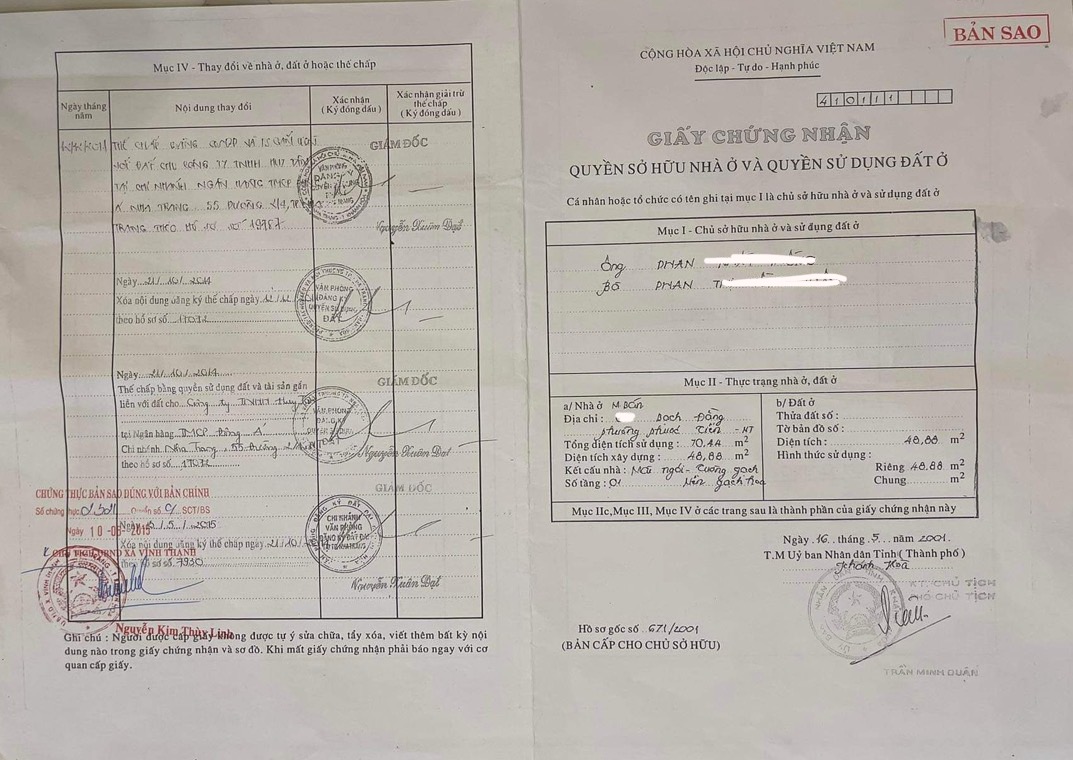 Mục IV - Thay đổi về nhà ở, đất ở hoặc thế chấp
Ngày tháng năm
Nội dung thay đổi
Xác nhận (Ký đóng dấu)
Xác nhận giải trừ thế chấp (Ký đóng dấu)
GIÁM ĐỐC
NƠI ĐẤT CHO CÔNG TY TNHH
TẠI CHI NHÁNH NGÂN HÀNG TMCP
Á NHA TRANG 55 ĐƯỜNG 2/4,
TRANG THEO HỒ SƠ SỐ 19787
Nguyễn Xuân Đạt
Ngày 21/10/2014
Xóa nội dung đăng ký thế chấp ngày
theo hồ sơ số 17072
VĂN PHÒNG ĐĂNG KÝ QUYỀN SỬ DỤNG ĐẤT
Ngày 21/10/2014
Thế chấp bằng quyền sử dụng đất và tài sản gắn
liền với đất cho Công ty TNHH
GIÁM ĐỐC
tại Ngân hàng TMCP Đông Á
Chi nhánh Nha Trang, 55 Đường 2/4
theo hồ sơ số 17072
Nguyễn Xuân Đạt
CHỨNG THỰC BẢN SAO ĐÚNG VỚI BẢN CHÍNH
GIÁM ĐỐC
Số chứng thực Quyển số SCT/BS
Ngày
Xóa nội dung đăng ký thế chấp ngày 21/10
UBND XÃ VĨNH THẠNH
theo hồ sơ số 7930
CHI NHÁNH VĂN PHÒNG ĐĂNG KÝ ĐẤT ĐAI
Nguyễn Xuân Đạt
Nguyễn Kim Thùy Linh
Ghi chú : Người được cấp giấy không được tự ý sửa chữa, tẩy xóa, viết thêm bất kỳ nội
dung nào trong giấy chứng nhận và sơ đồ. Khi mất giấy chứng nhận phải báo ngay với cơ
quan cấp giấy.
BẢN SAO
CỘNG HÒA XÃ HỘI CHỦ NGHĨA VIỆT NAM
Độc lập - Tự do - Hạnh phúc
410111
GIẤY CHỨNG NHẬN
QUYỀN SỞ HỮU NHÀ Ở VÀ QUYỀN SỬ DỤNG ĐẤT Ở
Cá nhân hoặc tổ chức có tên ghi tại mục I là chủ sở hữu nhà ở và sử dụng đất ở
Mục I - Chủ sở hữu nhà ở và sử dụng đất ở
Ông PHAN
Bà PHAN
Mục II - Thực trạng nhà ở, đất ở
a/ Nhà ở
Địa chỉ : Bạch Đằng
phường phước Tiến - NT
Tổng diện tích sử dụng : 70,44 m²
Diện tích xây dựng : 48,88 m²
Kết cấu nhà : Mái ngói - Tường gạch
Số tầng : 01 Nền gạch hoa
b/ Đất ở
Thửa đất số :
Tờ bản đồ số :
Diện tích : 48,88 m²
Hình thức sử dụng :
Riêng 48.88 m²
Chung m²
Mục IIc,Mục III, Mục IV ở các trang sau là thành phần của giấy chứng nhận này
Ngày 16 tháng 5 năm 2001
T.M Uỷ ban Nhân dân Tỉnh ( Thành phố )
Khánh Hoà
KT. CHỦ TỊCH
PHÓ CHỦ TỊCH
Hồ sơ gốc số 671/2001
(BẢN CẤP CHO CHỦ SỞ HỮU)
TRẦN MINH DUÂN